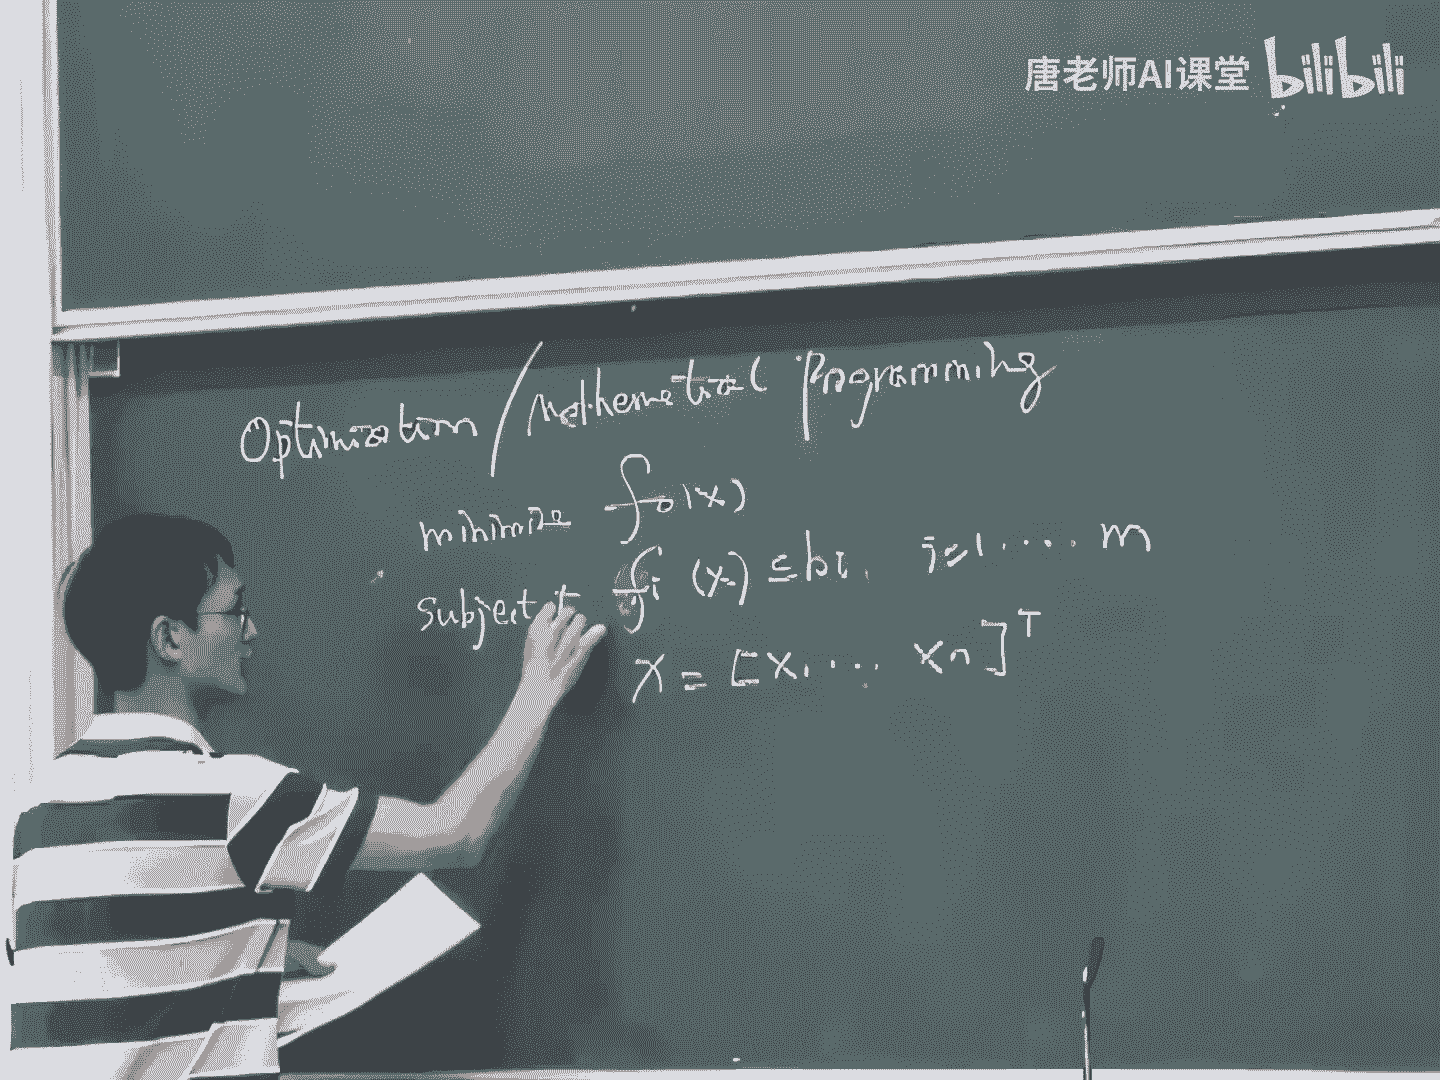 唐老师AI课堂 bilibili
Optimization / Mathematical Programming
minimize f₀(x)
subject to fᵢ(x) ≤ bᵢ, i=1....m
x = [x₁... xₙ]ᵀ